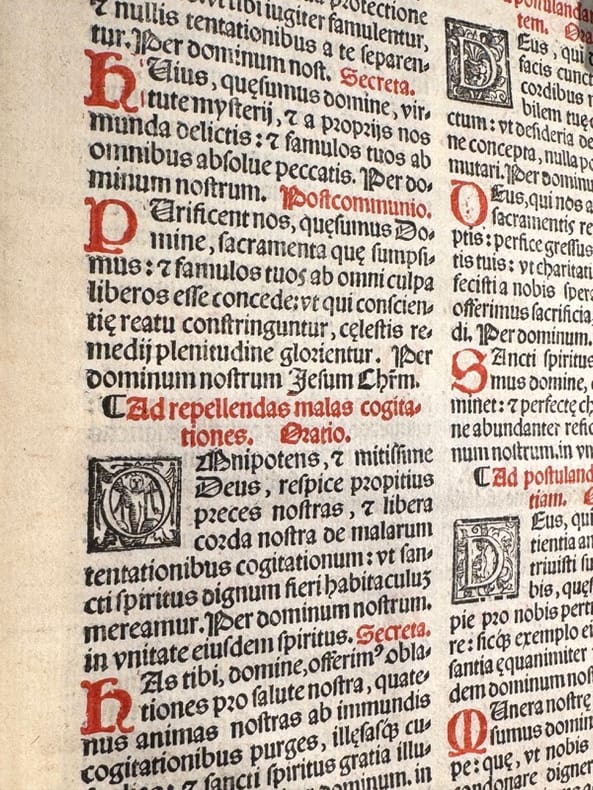 protectione
ut tibi iugiter famulentur,
⁊ nullis tentationibus a te separen-
tur. Per dominum nost. Secreta.
HUius, quęsumus domine, vir-
tute mysterij, ⁊ a proprijs nos
munda delictis: ⁊ famulos tuos ab
omnibus absolue peccatis. Per do-
minum nostrum. Postcommunio.
PUrificent nos, quęsumus Do-
mine, sacramenta quę sumpsi-
mus: ⁊ famulos tuos ab omni culpa
liberos esse concede: vt qui conscien-
tię reatu constringuntur, cęlestis re-
medij plenitudine glorientur. Per
dominum nostrum Jesum Chrm.
⸿Ad repellendas malas cogita-
tiones. Oratio.
OMnipotens, ⁊ mitissime
Deus, respice propitius
preces nostras, ⁊ libera
corda nostra de malarum
tentationibus cogitationum: vt san-
cti spiritus dignum fieri habitaculuꝫ
mereamur. Per dominum nostrum.
in vnitate eiusdem spiritus. Secreta.
HAs tibi, domine, offerimꝰ obla-
tiones pro salute nostra, quate-
nus animas nostras ab immundis
cogitationibus purges, illęsasqꝫ cu-
⁊ sancti spiritus gratia illu-
dominum. in
postulandam
tem. Ora
DEus, qui d
facis cunct
cordibus n
bilem tuę c
ctum: vt desideria de
ne concepta, nulla po
mutari. Per dominu
DEus, qui nos a
sacramentis re
ptis: perfice gressus
tis tuis: vt charitati
fecisti a nobis spera
offerimus sacrificia
di. Per dominum.
SAncti spiritus
mus domine, c
minet: ⁊ perfectę ch
ne abundanter refic
num nostrum. in vn
⸿Ad postuland
tiam.
DEus, qui
tientia an
triuisti su
bis, quęs
pie pro nobis pert
re: sicqꝫ exemplo ei
santia ęquanimiter
dem dominum nost
MUnera nostrę
sumus domin
pe: quę, vt nobis
condonare digner